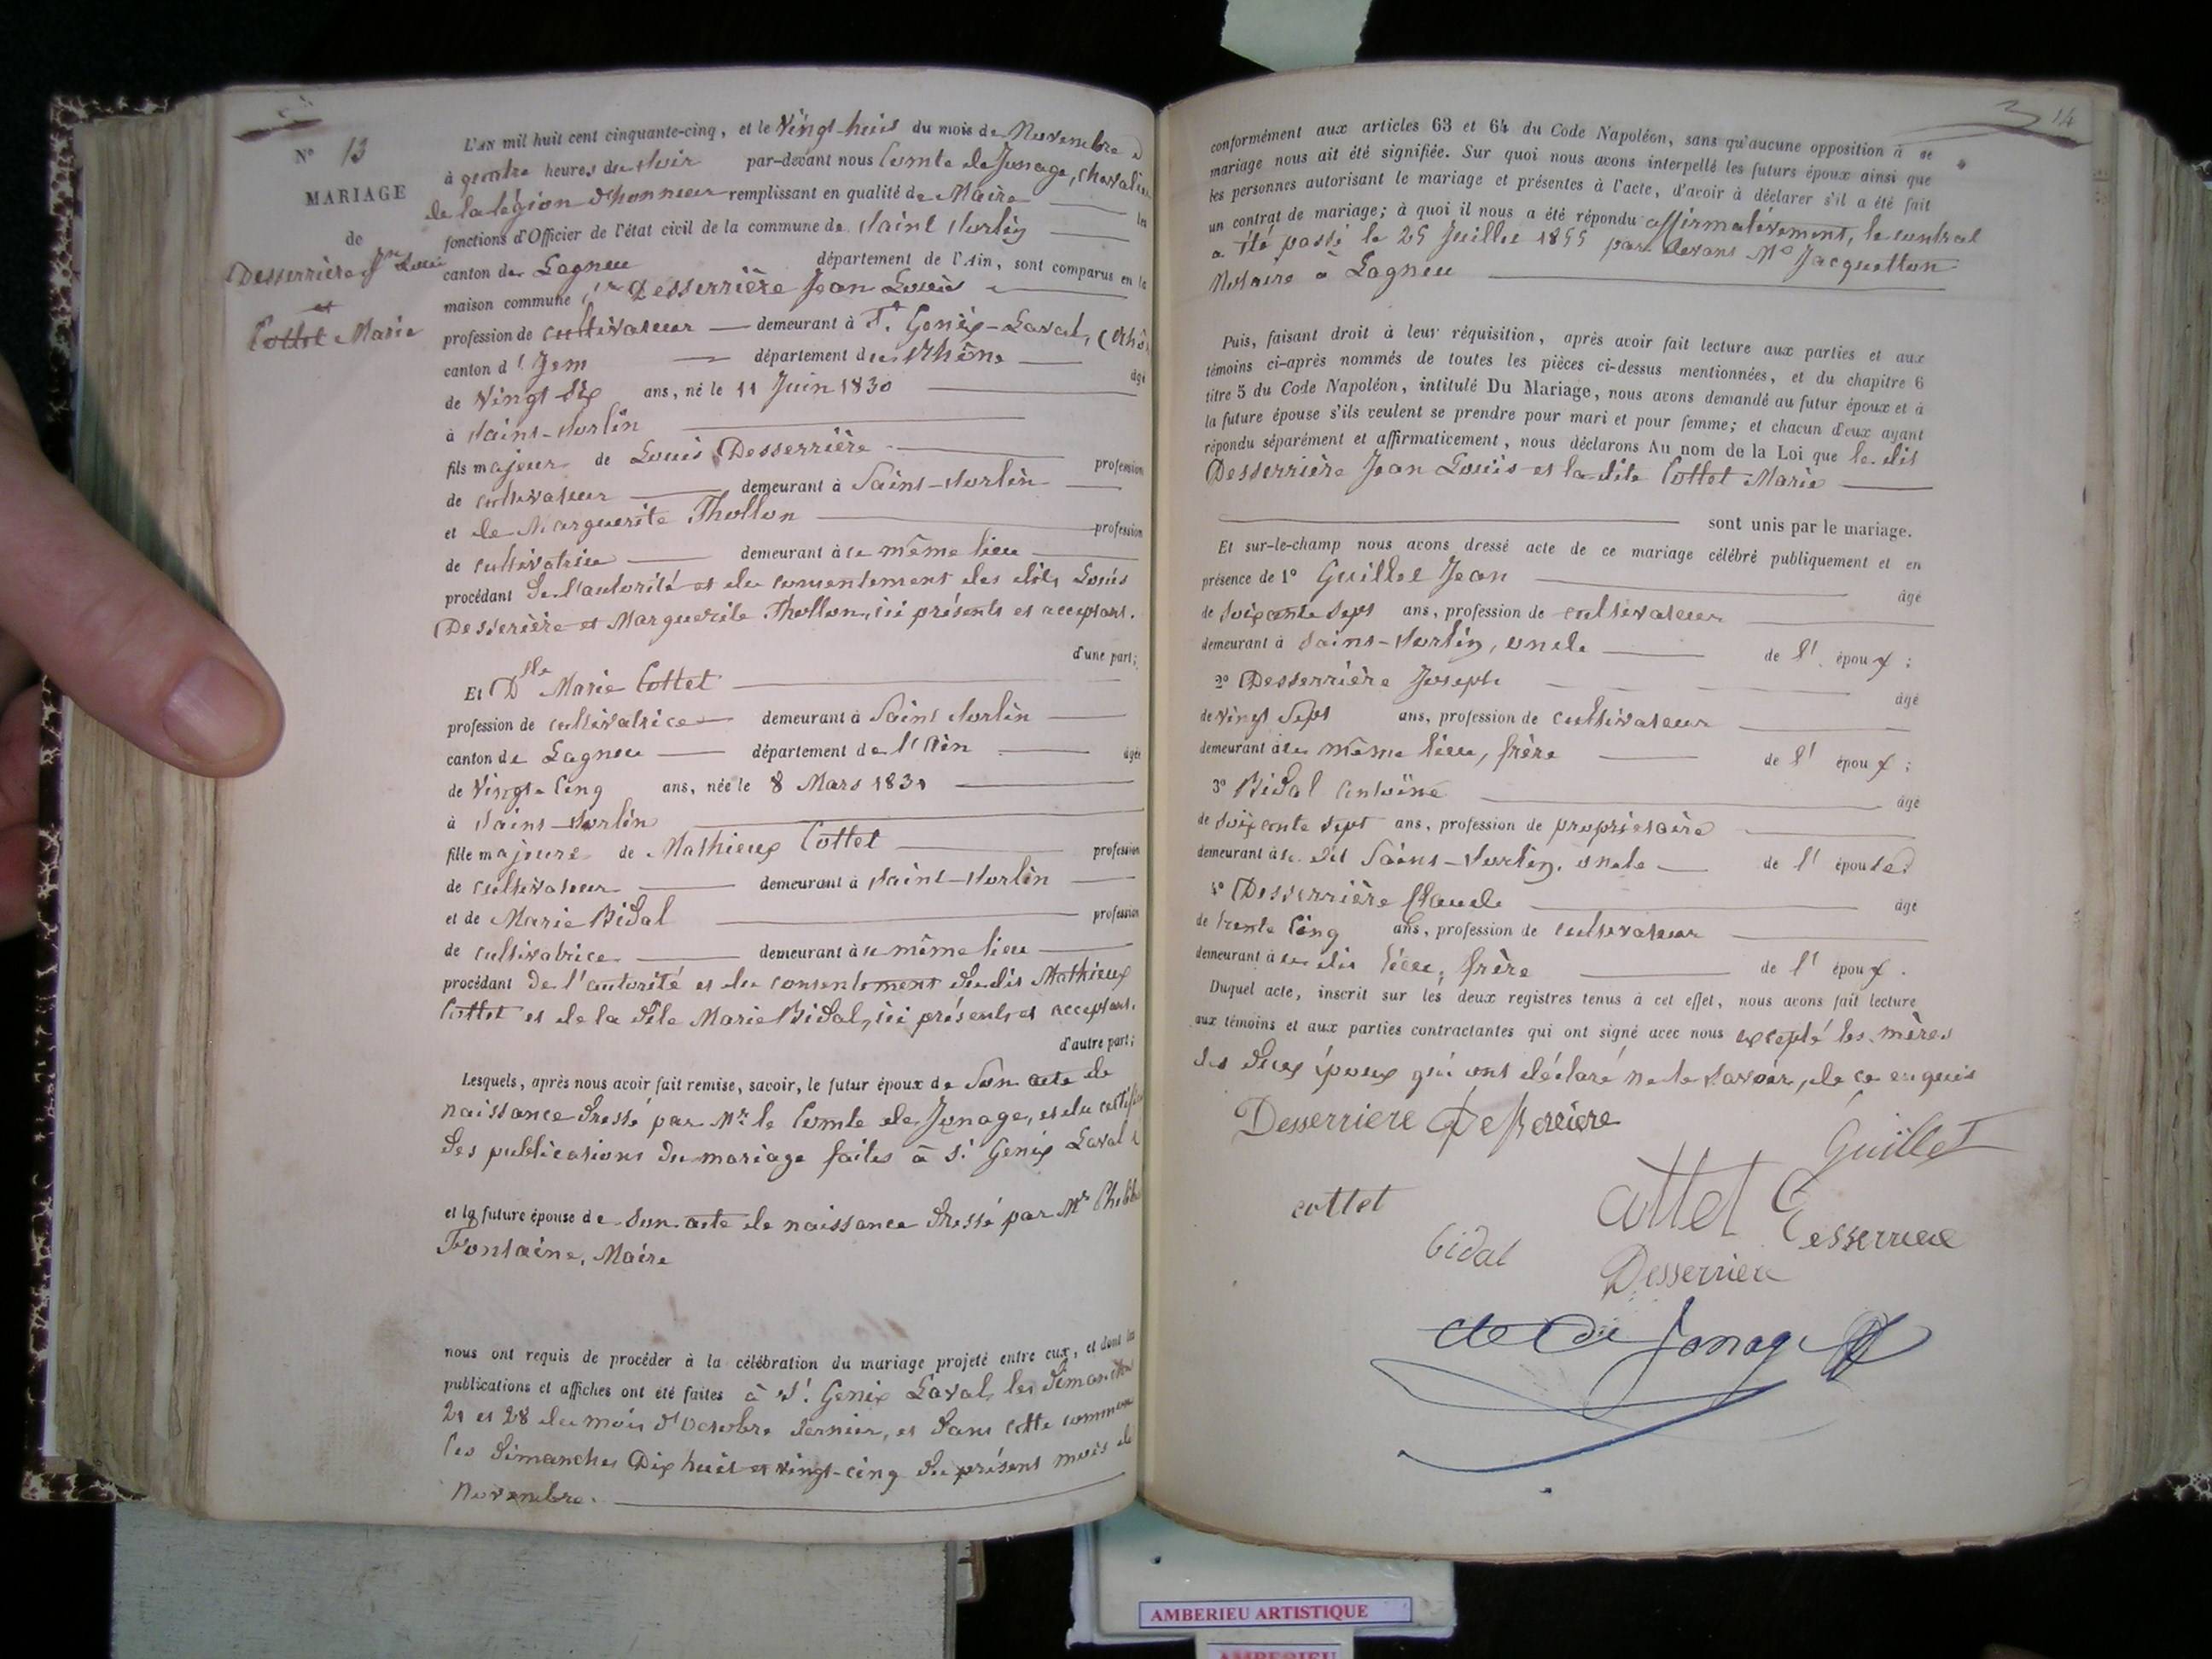 N° 13
MARIAGE
de
Desserrière Jn Louis
et
Cottet Marie
L'AN mil huit cent cinquante-cinq, et le Vingt-huit du mois de Novembre
à quatre heures du Soir par-devant nous Comte de Jonage, chevalier
de la légion d'honneur remplissant en qualité de Maire les
fonctions d'Officier de l'état civil de la commune de Saint Sorlin
canton de Lagneu département de l'Ain, sont comparus en la
maison commune Desserrière Jean Louis
profession de cultivateur demeurant à St. Genix-Laval, (Rhô
canton d'Jem département du Rhône âgé
de Vingt Six ans, né le 11 Juin 1830
à Saint-Sorlin
fils majeur de Louis Desserrière profession
de cultivateur demeurant à Saint-Sorlin
et de Marguerite Thollon profession
de cultivatrice demeurant à ce même lieu
procédant de l'autorité et du consentement des dits Louis
Desserière et Marguerite Thollon, ici présents et acceptant.
d'une part;
Et Dlle Marie Cottet
profession de cultivatrice demeurant à Saint Sorlin
canton de Lagneu département de l'Ain âgée
de Vingt-Cinq ans, née le 8 Mars 1831
à Saint-Sorlin
fille majeure de Mathieux Cottet profession
de cultivateur demeurant à Saint-Sorlin
et de Marie Bidal profession
de cultivatrice demeurant à ce même lieu
procédant De l'autorité et du consentement dudit Mathieux
Cottet et de la dite Marie Bidal, ici présents et acceptant.
d'autre part;
Lesquels, après nous avoir fait remise, savoir, le futur époux de Son acte de
naissance dressé par Mr le Comte de Jonage, et du certific
des publications du mariage faites à St Genix Laval
et la future épouse de Son acte de naissance dressé par Mr
Fontaine, Maire
nous ont requis de procéder à la célébration du mariage projeté entre eux, et dont les
publications et affiches ont été faites à St. Genix Laval, les dimanches
21 et 28 du mois d'octobre dernier, et dans cette commune
les dimanches Dix huit et vingt-cinq du présent mois de
Novembre.
14
conformément aux articles 63 et 64 du Code Napoléon, sans qu'aucune opposition à se
mariage nous ait été signifiée. Sur quoi nous avons interpellé les futurs époux ainsi que
les personnes autorisant le mariage et présentes à l'acte, d'avoir à déclarer s'il a été fait
un contrat de mariage; à quoi il nous a été répondu affirmativement, le contrat
a été passé le 25 Juillet 1855 par devant Me Jacquetton
Notaire à Lagneu
Puis, faisant droit à leur réquisition, après avoir fait lecture aux parties et aux
témoins ci-après nommés de toutes les pièces ci-dessus mentionnées, et du chapitre 6
titre 5 du Code Napoléon, intitulé Du Mariage, nous avons demandé au futur époux et à
la future épouse s'ils veulent se prendre pour mari et pour femme; et chacun d'eux ayant
répondu séparément et affirmaticement, nous déclarons Au nom de la Loi que le dit
Desserrière Jean Louis et la dite Cottet Marie
sont unis par le mariage.
Et sur-le-champ nous avons dressé acte de ce mariage célébré publiquement et en
présence de 1° Guillet Jean âgé
de Soixante Sept ans, profession de cultivateur
demeurant à Saint-Sorlin, oncle de l'époux;
2° Desserrière Joseph âgé
de vingt Sept ans, profession de cultivateur
demeurant à ce même lieu, frère de l'époux;
3° Bidal Antoine âgé
de Soixante Sept ans, profession de propriétaire
demeurant à ce dit Saint-Sorlin, oncle de l'épouse
4° Desserrière Claude âgé
de trente Cinq ans, profession de cultivateur
demeurant à ce dit lieu, frère de l'époux.
Duquel acte, inscrit sur les deux registres tenus à cet effet, nous avons fait lecture
aux témoins et aux parties contractantes qui ont signé avec nous excepté les mères
des deux époux qui ont déclaré ne le savoir, de ce enquis
Desserriere Desserriere
Guillet
cottet
cottet
bidal
Desserriere
Desserriere
de Jonage
AMBERIEU ARTISTIQUE
AMBERIEU